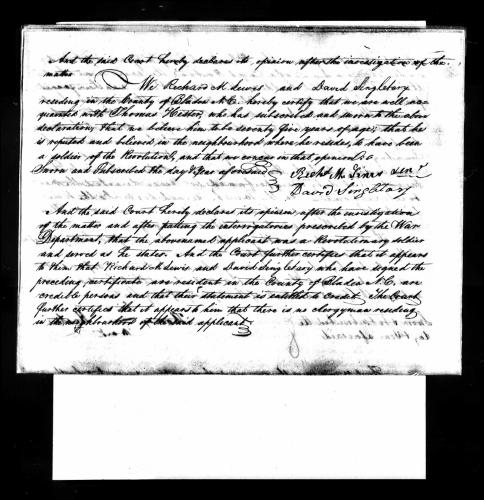 And the said Court hereby declares its opinion after the investigation of the
matter
We Richard M. Lewis and David Singletary
residing in the County of Bladen N.C. hereby certify that we are well ac-
quainted with Thomas Hester, who has subscribed and sworn to the above
declaration, that we believe him to be seventy five years of age; that he
is reputed and believed in the neighbourhood where he resides, to have been
a soldier of the Revolution, and that we concur in that opinion
Sworn and Subscribed the day & year aforesaid
Richd. M.
David Singletary
And the said Court hereby declares its opinion after the investigation
of the matter and after putting the interrogatories prescribed by the War
Department, that the abovenamed applicant was a Revolutionary soldier
and served as he states. And the Court further certifies that it appears
to them that Richard M Lewis and David Singletary who have signed the
preceding certificate are resident in the County of Bladen N.C. are
credible persons and that their statement is entitled to credit. The Court
further certifies that it appears to him that there is no clergyman residing
in the neighbourhood of the said applicant